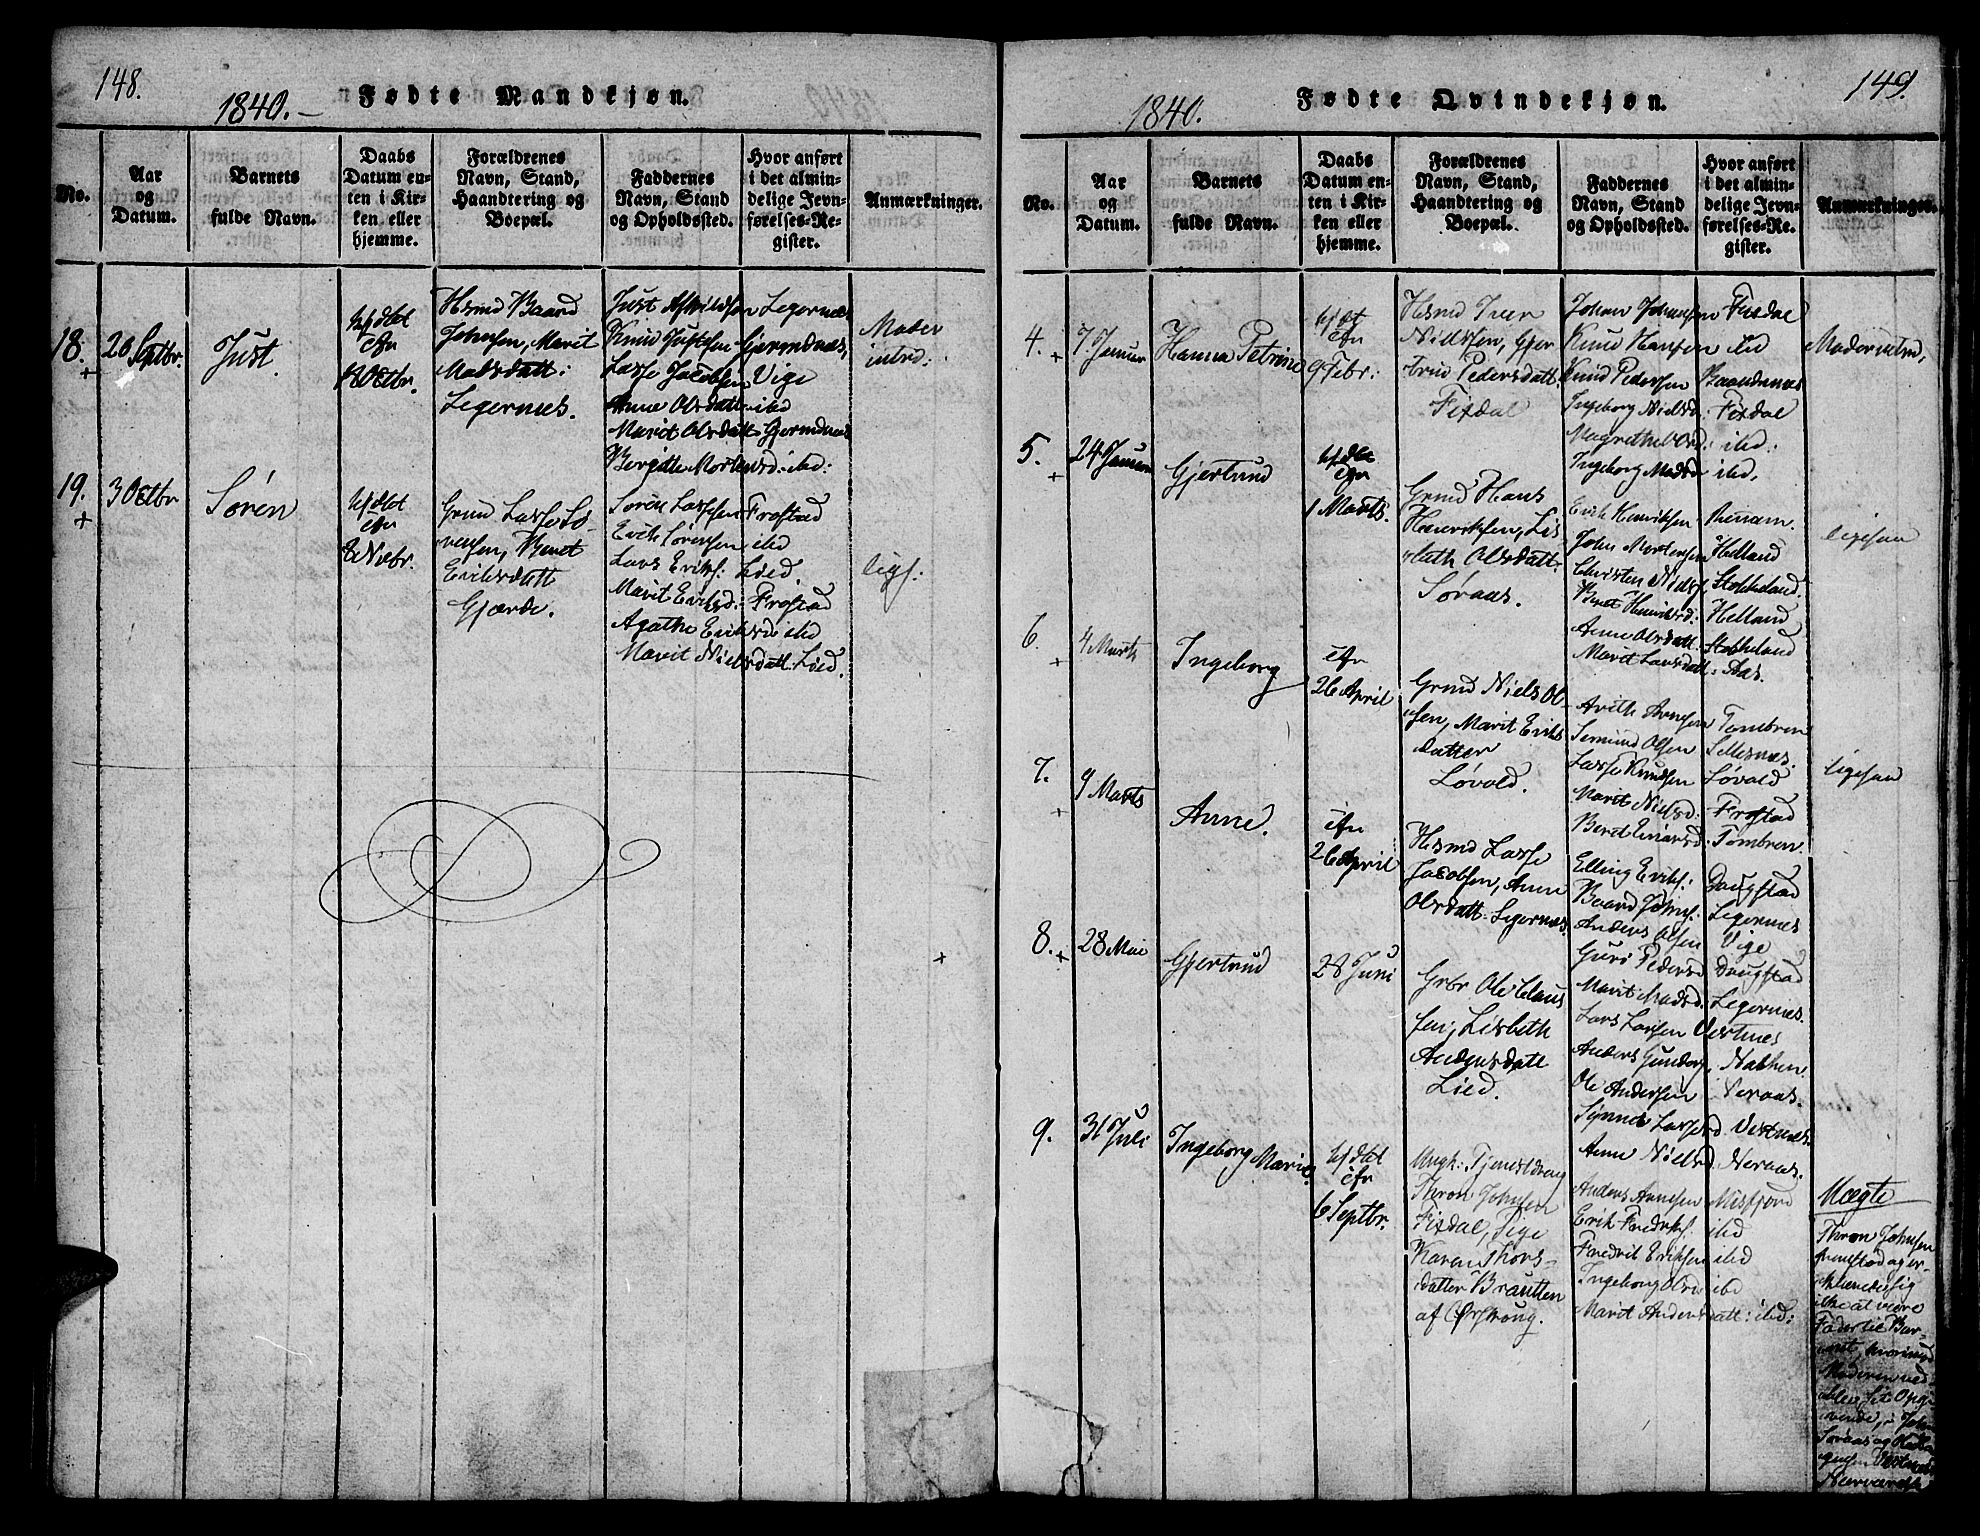 148.
1840.
Fødte Mandkjøn.
No.
Aar
og
Datum.
Barnets
fulde Navn.
Daabs
Datum en-
ten i Kir-
ken eller
hjemme.
Forældrenes
Navn, Stand,
Haandtering og
Boepæl.
Faddernes
Navn, Stand
og Opholdssted.
Hvor anført
i det almin-
delige Jevn-
førelses-Re-
gister.
Anmærkninger.
18.
+
20 Septbr.
Just.
hjdbt
cfr
Octbr.
Hsmd Baard
Johnsen, Marit
Madsdatt:
Legernes.
Just Legernes
Knud Justesen Gjermdnæs,
Lasse Jacobsen Vige
Anne Olsdatt ibd
Marit Olsdatt Gjermdnæs
Birgitte Mortensd: ibd:
Moder
introd:
19.
+
3 Octbr
Søren
hjdbt
cfr
8 Novbr.
Grmd Lasse Sø-
rensen, Beret
Eriksdatt
Gjærde.
Søren Lassen Frostad
Erik Sørensen ibd
Lars Eriks: Lied
Marit Eriksd: Frostad
Agathe Eriksd: ibd
Marit Nielsdatt: Lied.
ligs:
149.
1840.
Fødte Qvindekjøn.
No.
Aar
og
Datum.
Barnets
fulde Navn.
Daabs
Datum en-
ten i Kir-
ken eller
hjemme.
Forældrenes
Navn, Stand,
Haandtering og
Boepæl.
Faddernes
Navn, Stand
og Opholdssted.
Hvor anført
i det almin-
delige Jevn-
førelses-Re-
gister.
Anmærkninger.
4.
+
7. Januar
Hanna Petrine
hjdbt
cfr
9 Febr:
Hsmd Iver
Nielssen, Gjer
trud Pedersdatt.
Fixdal
Johan Johnsen Fixdal
Knud Hansen ibd
Knud Pedersen Baandnæs
Ingeborg Nielsd: Fixdal
Magrethe Olsd: ibd:
Ingeborg Madsd ibd.
Moder introd,
5.
+
24 Januar
Gjertrud
hjdbt
cfr
1 Marts.
Grmd Hans
Henriksen, Lis
beth Olsdatt:
Søraas.
Erik Henriksen
John Mortensen Helland
Christen Niels: Stokkeland.
Beret Henriksd: Helland
Anne Olsdatt: Stokkeland
Marit Larsdatt: Aas.
ligesaa
6.
+
4 Marts
Ingeborg
cfr
26 April
Grmd Niels Ol-
sen, Marit Eriks
datter
Løvold.
Arith Arnesen Tombren
Semund Olsen Sellesnæs.
Lasse Knudsen Løvold
Marit Nielsd: Frostad
Beret Einarsd: Tombren.
ligesaa
7.
+
9 Marts
Anne.
cfr
26 April
Hsmd Lasse
Jacobsen, Anne
Olsdatt: Legernæs.
Elling Eriks: Daugstad
Baard Johns: Legernes
Anders Olsen Vige
Guri Pedersd Daugstad
Marit Madsd. Legernes.
8.
+
28 Mai
Gjertrud
28 Juni
Grbr Ole Claus
sen, Lisbeth
Andersdatt
Lied.
Lars Larsen Vestnes
Anders Gunders, Nakken.
Ole Andersen Neraas.
Synnve Larsensd. Vestnæs.
Anne Nielsd. Neraas.
9.
31 Juli
Ingeborg Marie
hjdbt
cfr
6 Septbr.
Ungk: Tjenestdreng
Thron Johnsen
Fixdal, Pige
Karen Thors-
datter Brautten
af Ørskoug.
Anders Arnesen Misfjord
Erik Fredriks: ibd
Fredrik Eriksen ibd
Ingeborg Olsd ibd
Marit Andersdatt: ibd:
Uægte
Thron Johnsen
fremstod og er-
klærede sig
ikke at være
Fader til Bar-
net, hvorimod
Moderen ved-
blev sit Opgi-
vende, i